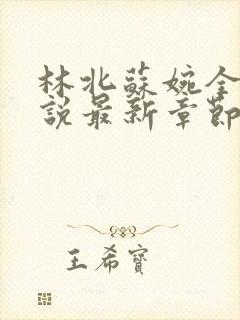 林北蘇婉全
説最新章節
王希寶